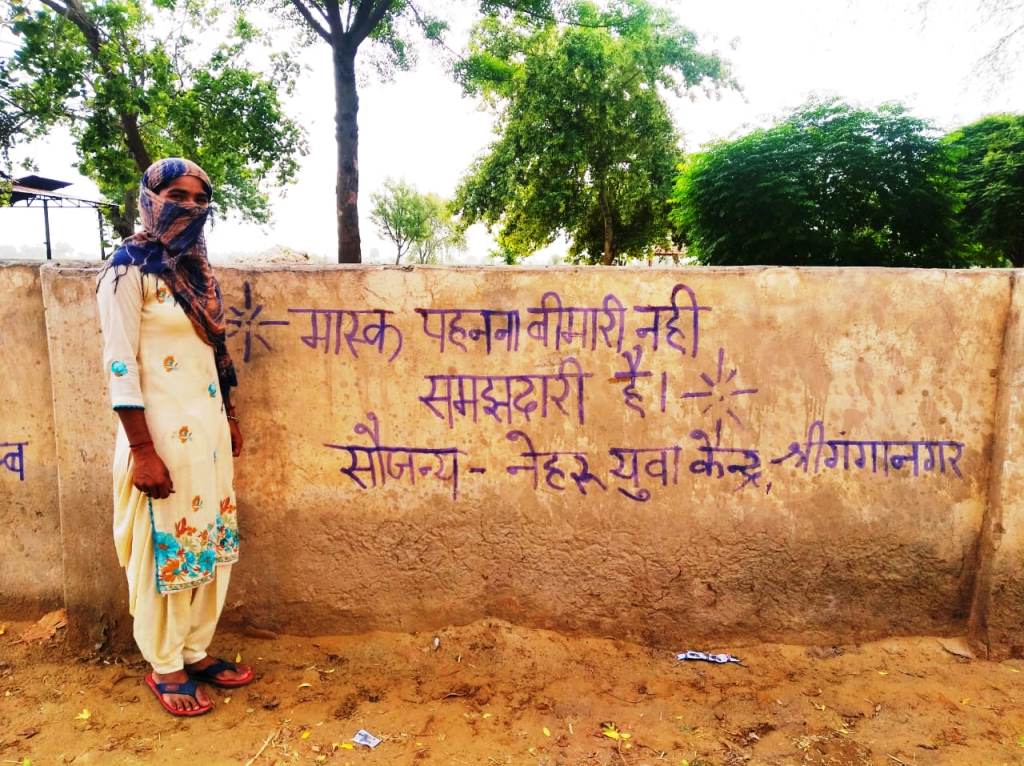 मास्क पहनना बीमारी नही
समझदारी है।
सौजन्य - नेहरू युवा केन्द्र, श्रीगंगानगर